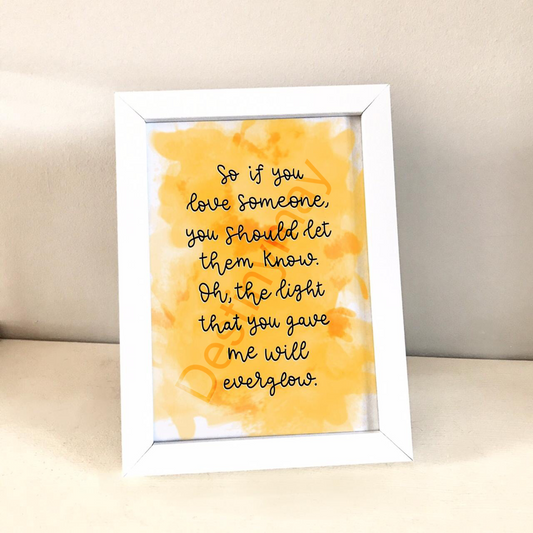 So if you
love someone,
you should let
them know.
Oh, the light
that you gave
me will
everglow.